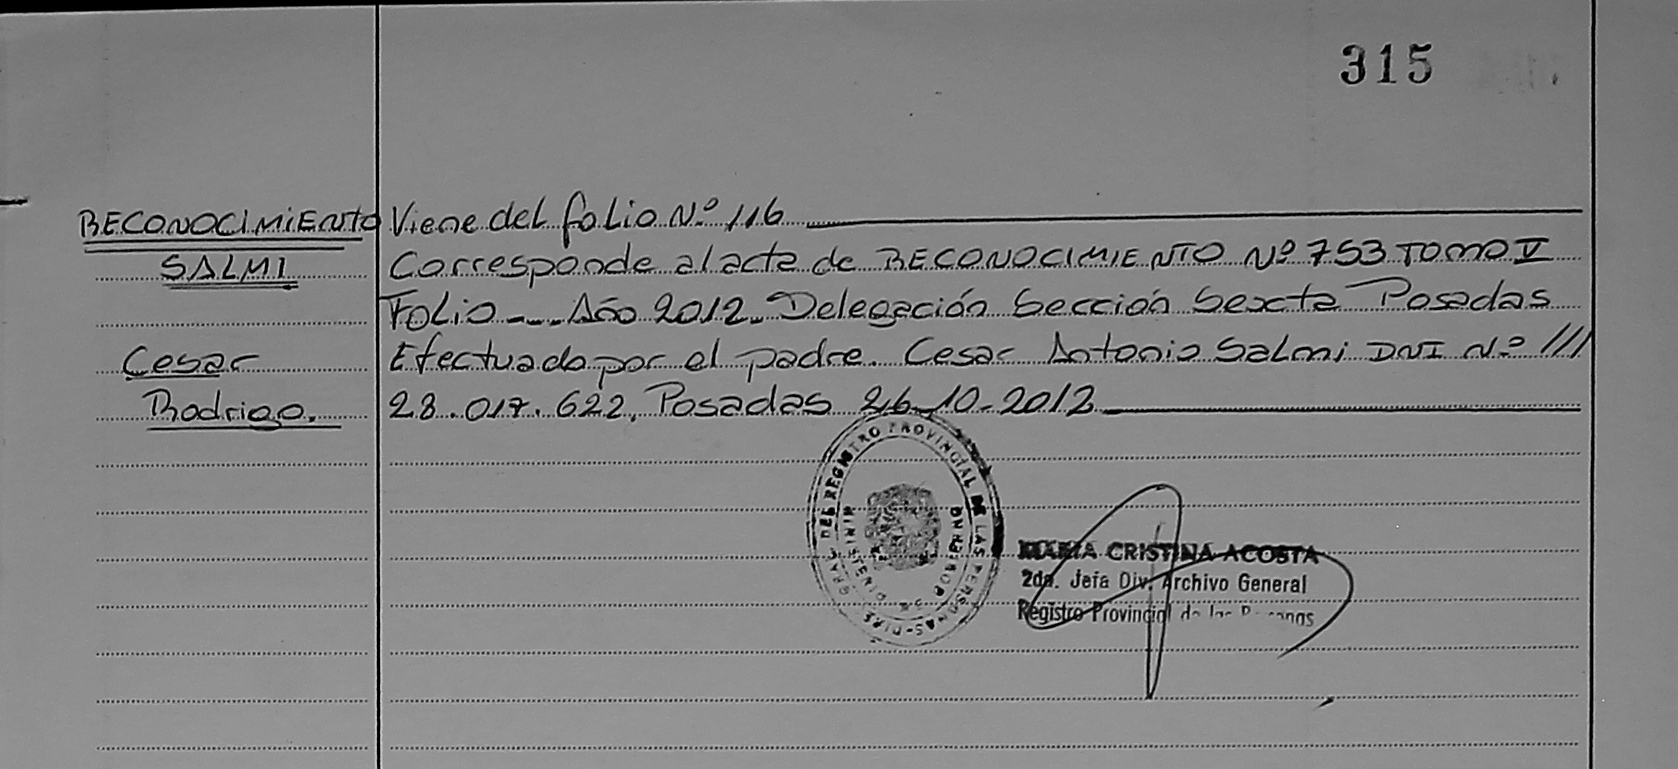 315
RECONOCIMIENTO
SALMI
Cesar
Rodrigo.
Viene del folio N.º 116
Corresponde al acta de RECONOCIMIENTO Nº 753 TOMO V
FOLIO --- Año 2012. Delegación Sección Sexta Posadas
Efectuado por el padre. Cesar Antonio Salmi DNI N.º ///
28.017.622, Posadas 26-10-2012
DEL REGISTRO PROVINCIAL DE LAS PERSONAS
MARIA CRISTINA ACOSTA
2da. Jefa Div. Archivo General
Registro Provincial de las